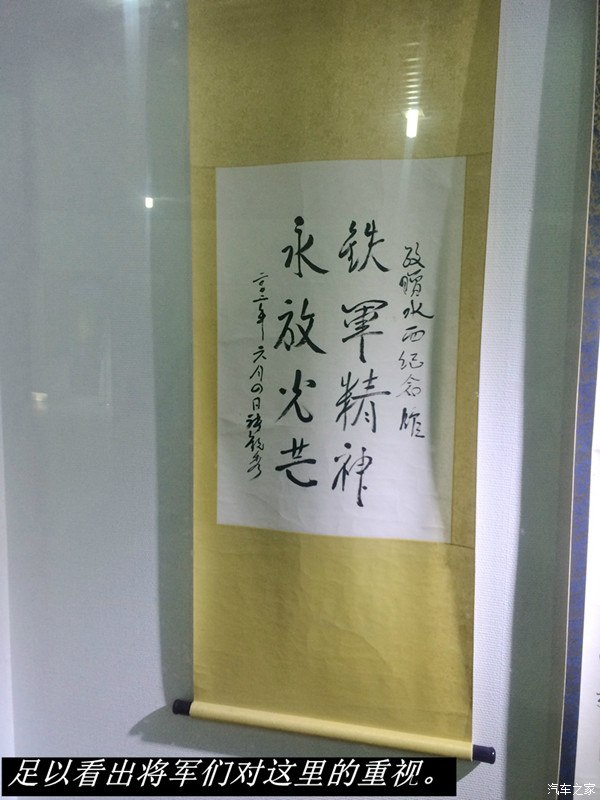 敬赠水西纪念馆
铁军精神
永放光芒
二〇〇二年六月四日
足以看出将军们对这里的重视。
汽车之家